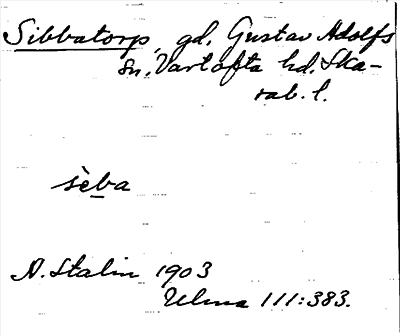 Sibbatorp, gd. Gustav Adolfs
sn. Vartofta hd. Ska-
rab. l.
sèba
A. Stalin 1903
Ulma 111:383.